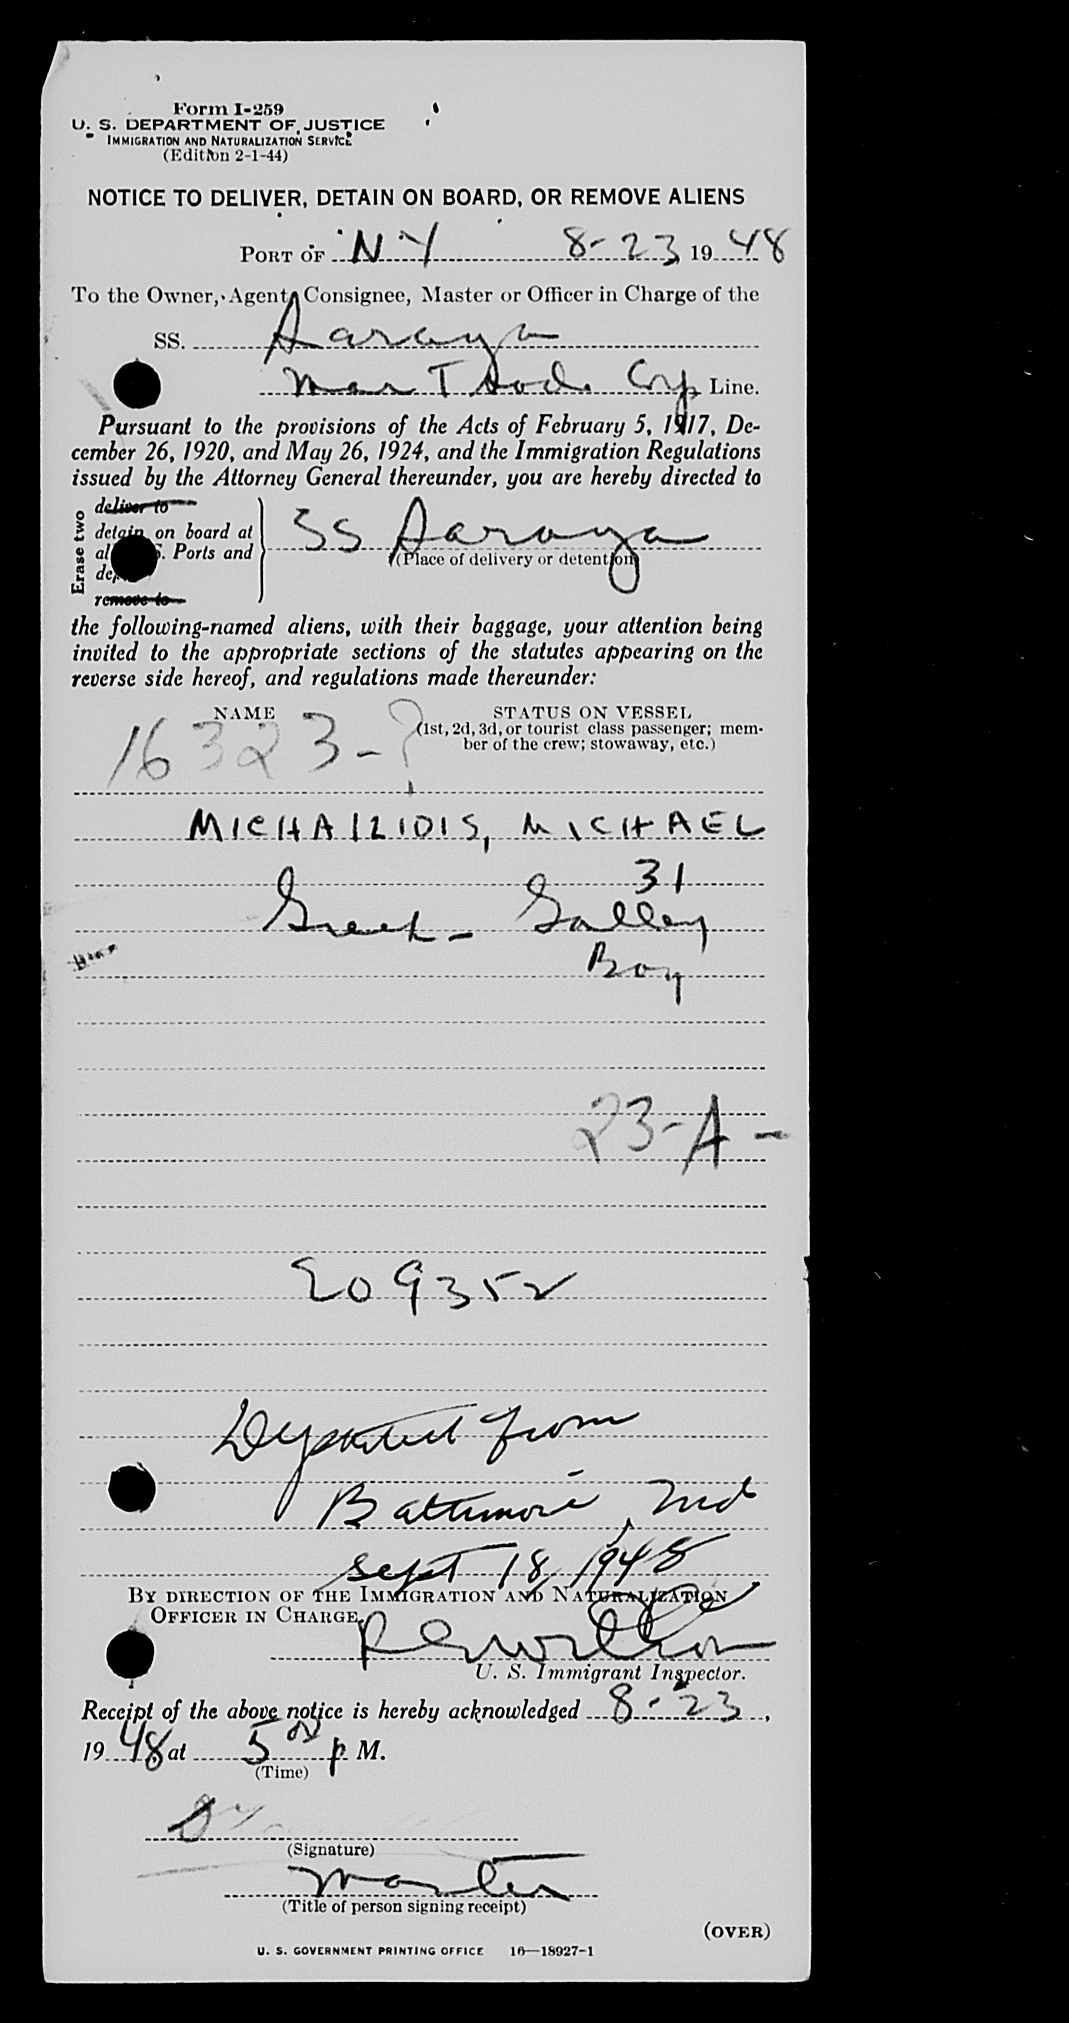 Form I-259
U. S. DEPARTMENT OF JUSTICE
IMMIGRATION AND NATURALIZATION SERVICE
(Edition 2-1-44)
NOTICE TO DELIVER, DETAIN ON BOARD, OR REMOVE ALIENS
PORT OF NY 8-23, 1948
To the Owner, Agent, Consignee, Master or Officer in Charge of the
SS. Saraya
Mar Trade Corp Line.
Pursuant to the provisions of the Acts of February 5, 1917, De-
cember 26, 1920, and May 26, 1924, and the Immigration Regulations
issued by the Attorney General thereunder, you are hereby directed to
Erase two
deliver to
detain on board at
S. Ports and
SS Saraya
(Place of delivery or detention)
remove to
the following-named aliens, with their baggage, your attention being
invited to the appropriate sections of the statutes appearing on the
reverse side hereof, and regulations made thereunder:
NAME STATUS ON VESSEL
(1st, 2d, 3d, or tourist class passenger; mem-
ber of the crew; stowaway, etc.)
16323-?
MICHAILIDIS, MICHAEL
31
Greek - Galley
Boy
23-A-
209352
Departed from
Baltimore, Md
Sept 18, 1948
BY DIRECTION OF THE IMMIGRATION AND NATURALIZATION
OFFICER IN CHARGE.
U. S. Immigrant Inspector.
Receipt of the above notice is hereby acknowledged 8-23,
1948 at 5 00 p M.
(Time)
(Signature)
Master
(Title of person signing receipt)
(OVER)
U. S. GOVERNMENT PRINTING OFFICE 16—18927-1